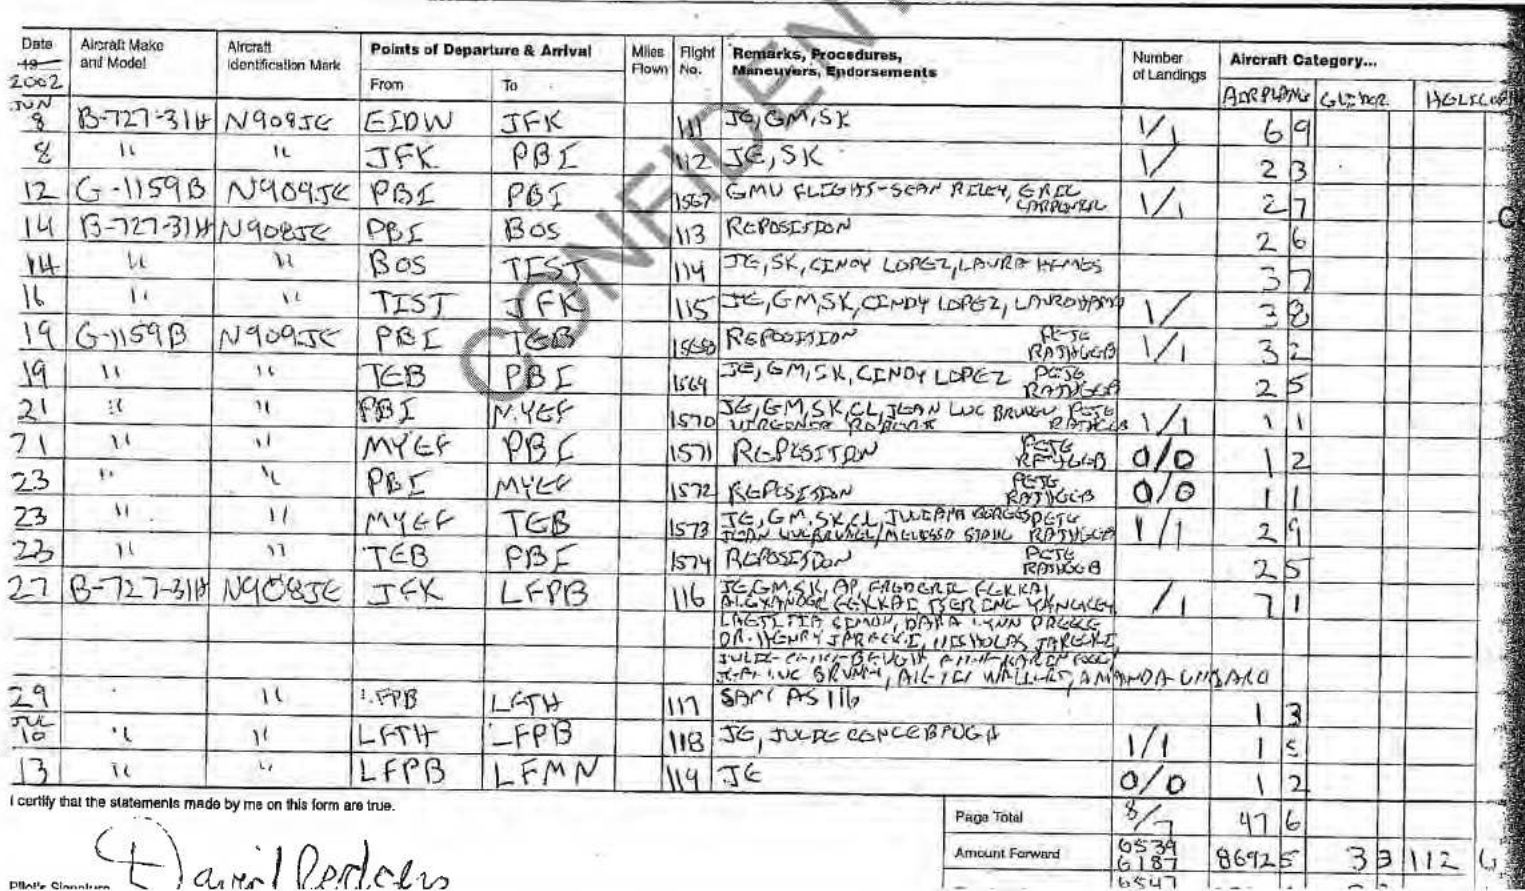 CONFIDEN
Date Aircraft Make and Model Aircraft Identification Mark Points of Departure & Arrival Miles Flown Flight No. Remarks, Procedures, Maneuvers, Endorsements Number of Landings Aircraft Category...
19 2002 From To AIRPLANE GLIDER HELICOP
JUN 8 B-727-31H N908JE EIDW JFK 111 JE, GM, SK 1/1 6 9
8 " " JFK PBI 112 JE, SK 1/ 2 3
12 G-1159B N909JE PBI PBI 1567 GMU FLIGHTS-SEAN RILEY, ERIC 1/1 2 7
14 B-727-31H N908JE PBI BOS 113 REPOSITION 2 6
14 " " BOS TIST 114 JE, SK, CINDY LOPEZ, LAURA 3 7
16 " " TIST JFK 115 JE, GM, SK, CINDY LOPEZ, 1/ 3 8
19 G-1159B N909JE PBI TEB 1568 REPOSITION PETE RATHGEB 1/1 3 2
19 " " TEB PBI 1569 JE, GM, SK, CINDY LOPEZ PETE RATHGEB 2 5
21 " " PBI MYEF 1570 JE, GM, SK, CL, JEAN LUC BRUNEL PETE RATHGEB 1/1 1 1
21 " " MYEF PBI 1571 REPOSITION PETE RATHGEB 0/0 1 2
23 " " PBI MYEF 1572 REPOSITION PETE RATHGEB 0/0 1 1
23 " " MYEF TEB 1573 JE, GM, SK, CL, JULIANA BORGES PETE
JEAN LUC BRUNEL/ RATHGEB 1/1 2 9
23 " " TEB PBI 1574 REPOSITION PETE RATHGEB 2 5
27 B-727-31H N908JE JFK LFPB 116 JE, GM, SK, AP, FREDERIC FEKKAI /1 7 1
ALEXANDER FEKKAI
LAETITIA SIMON, DARA LYNN
DR. HENRY JARECKI, NICHOLAS JARECKI,
BRUNEL, AMANDA
29 " LFPB LFTH 117 SAME AS 116 1 3
JUL 10 " " LFTH LFPB 118 JE, JULIE 1/1 1 5
13 " " LFPB LFMN 119 JE 0/0 1 2
I certify that the statements made by me on this form are true. Page Total 8/7 47 6
Amount Forward 6539 6187 8692 5 3 3 112
Pilot's Signature David Rodgers 6547